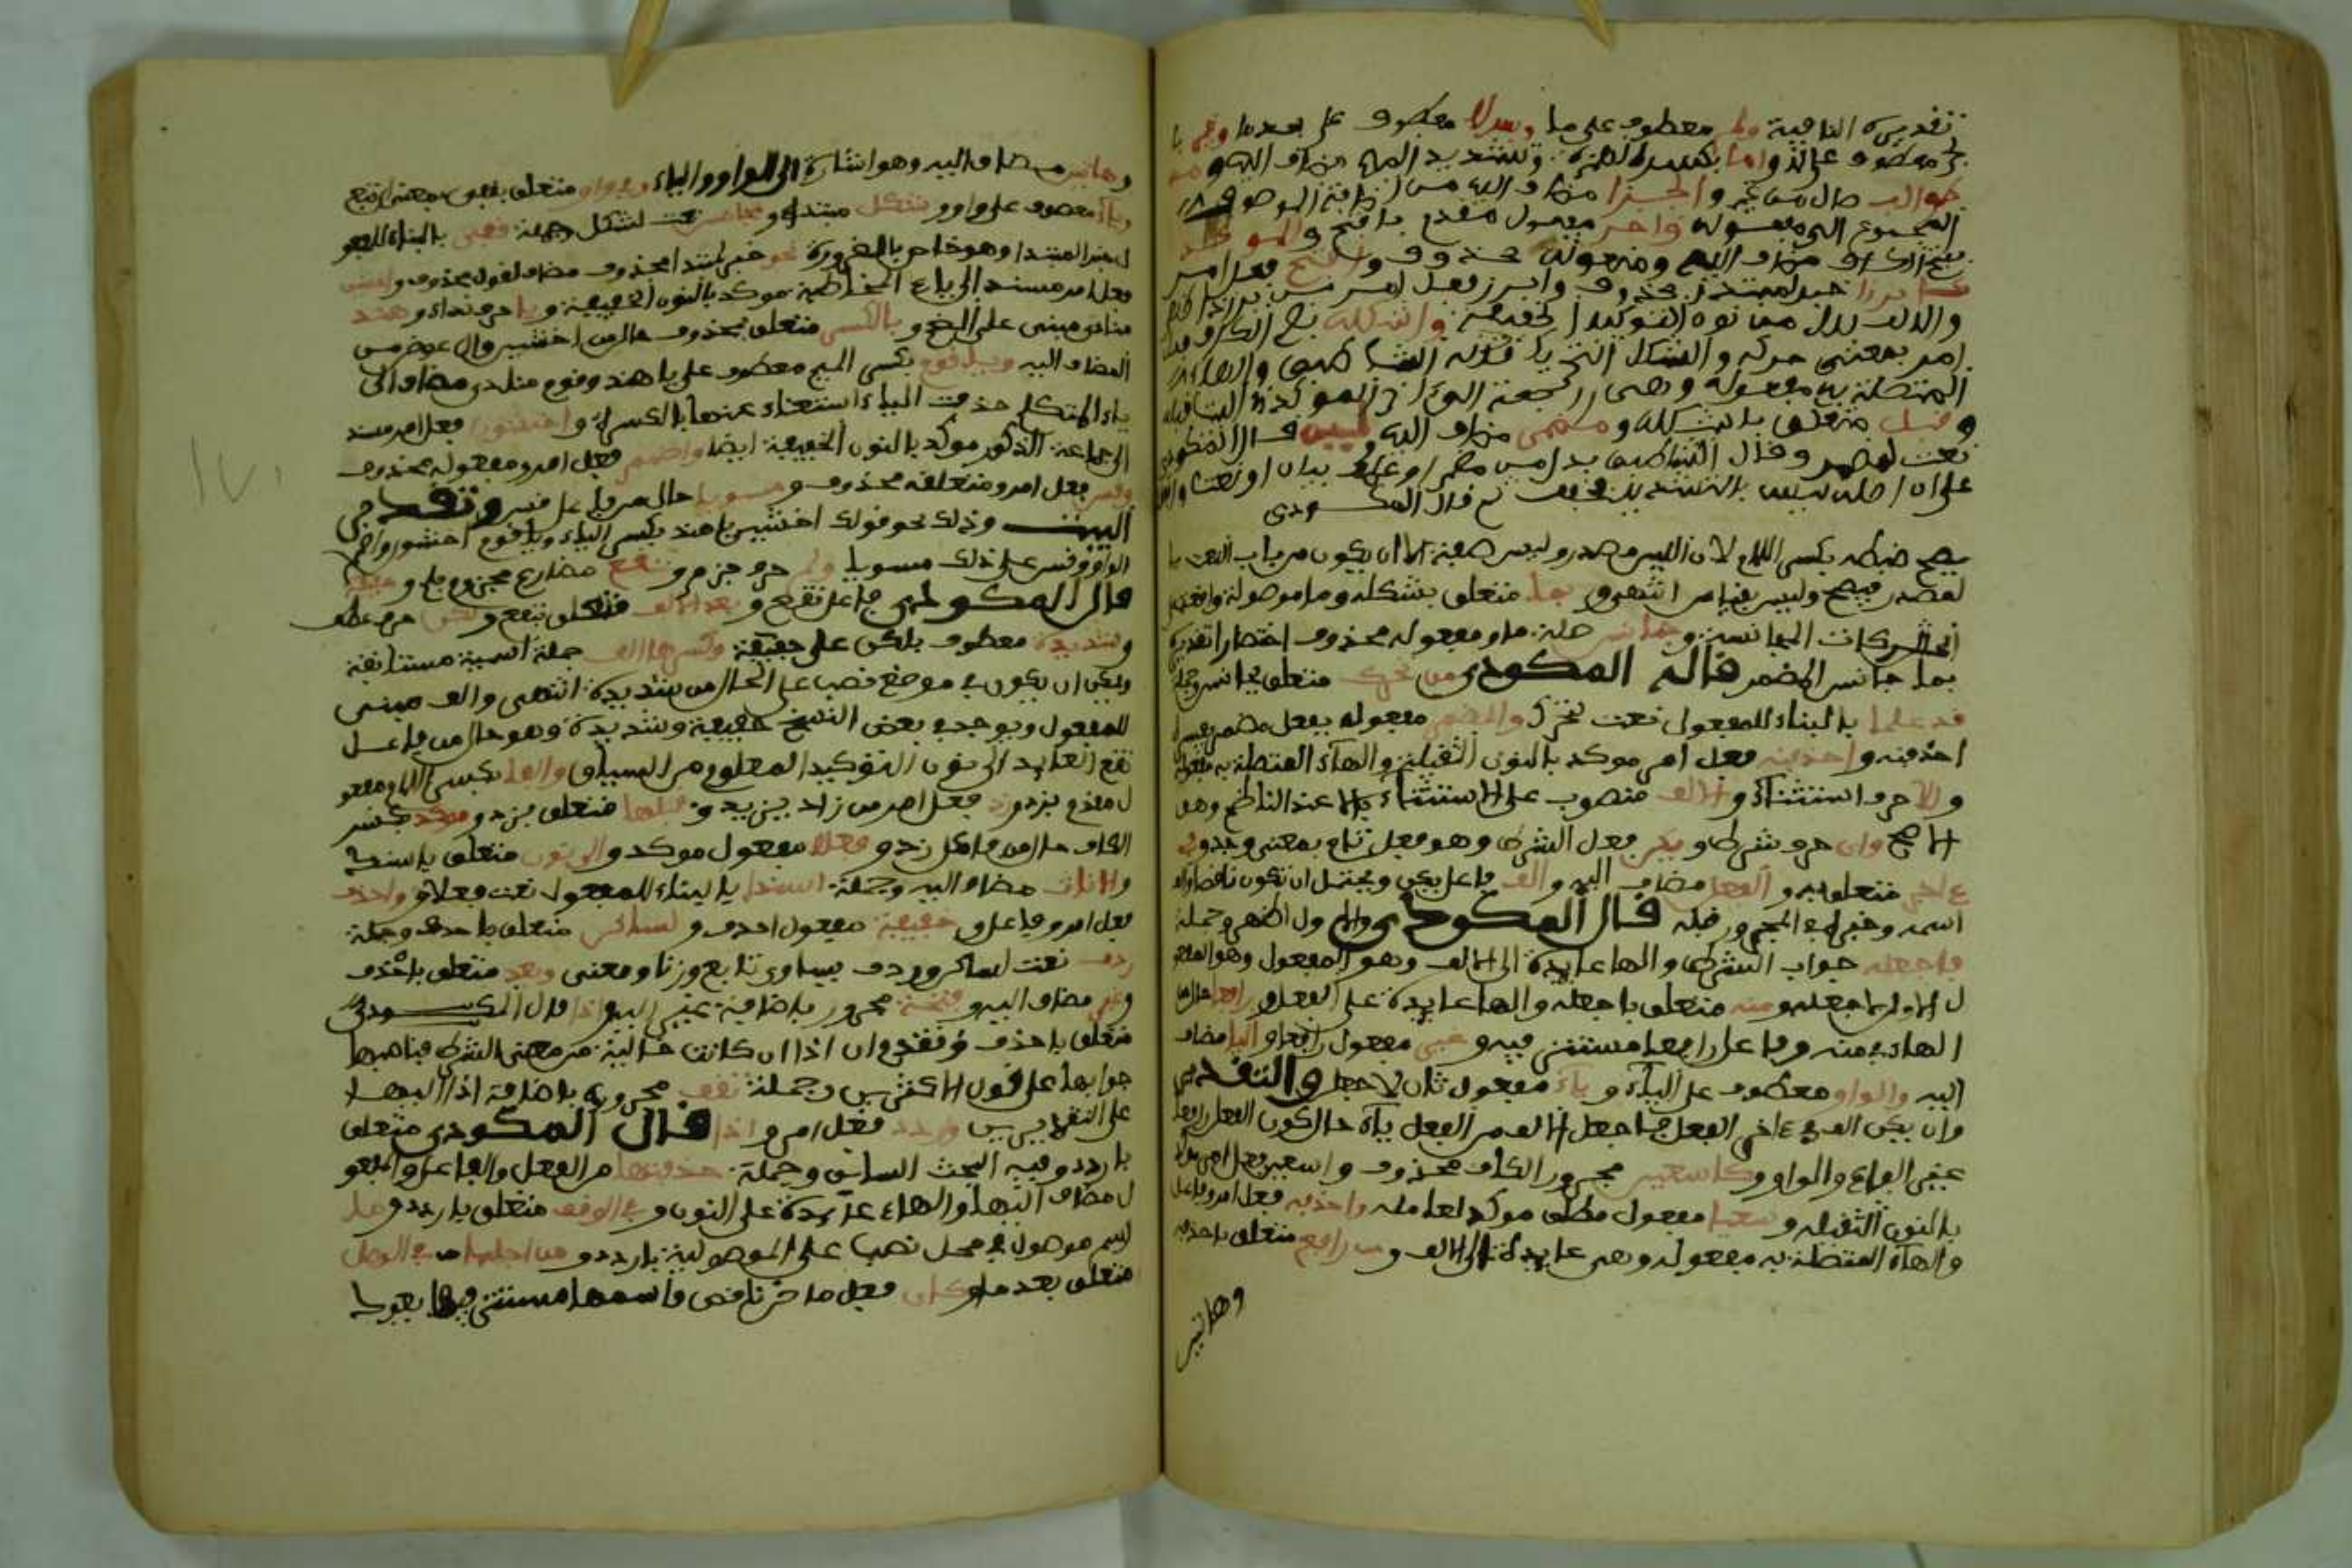 تقديره النافية ولم معطوف على ما وبعد لا معطوف على بعد ما وغير
معطوف على لا واما بكسر الهمزة وتشديد الميم مضاف اليه ومن
طوالب حال من غير والجزا مضاف اليه من اضافة الموصوف
المجموع الى مفعوله واخر مفعول مقدم بافتح والموكد
بفتح الكاف مضاف اليه ومتعلقه محذوف وافتح فعل امر
كابرزا خبر لمبتدا محذوف وابرز فعل امر من برز اذا ظهر
والالف بدل من نون التوكيد الخفيفة واشكله بضم الكاف فعل
امر بمعنى حركه والشكل التحريك قوله الشاطبي والهاء
المتصلة به مفعوله وهي راجعة الى اخر الموكد
وقبل متعلق باشكله ومضمر مضاف اليه ولين قال المكودي
نعت لمضمر وقال الشاطبي بدل من مضمر او عطف بيان او نعت
على ان اصله لين بالتشديد فخفف ثم قال المكودي
يصح ضبطه بكسر اللام لان اللين مصدر وليس صفة الا ان يكون من باب النعت
بالمصدر فيصح وليس بقياس انتهى وبما متعلق باشكله وما موصولة واقعة
الحركات المجانسة وجانس صلة ما ومفعوله محذوف اختصارا تقديره
بما جانس المضمر قاله المكودي من تحرك متعلق بجانس وجملة
قد علما بالبناء للمفعول نعت لتحرك والمضمر مفعول بفعل مضمر يفسره
احذفنه واحذفنه فعل امر موكد بالنون الثقيلة والهاء المتصلة به مفعوله
والا حرف استثناء والالف منصوب على الاستثناء بالا عند الناظم وهو
الاصح وان حرف شرط ويكن فعل الشرط وهو فعل تام بمعنى وجد وفي
ءاخر متعلق به والفعل مضاف اليه والف فاعل يكن ويحتمل ان تكون ناقصة والف
اسمه وخبره في المجرور قبله قال المكودي والاول اظهر وجملة
فاجعله جواب الشرط والها عايدة الى الالف وهو المفعول وهو المفعو
ل الاول لاجعله ومنه متعلق باجعله والها عايدة على الفعل ورافعا حال من
الهاء في منه وفاعل رافعا مستتر فيه وغير مفعول رافعا واليا مضاف
اليه والواو معطوف على الياء وياء مفعول ثان لاجعل والتقدير
وان يكن الف في ءاخر الفعل فاجعل الالف من الفعل ياء حال كون الفعل رافعا
غير الياء والواو وكاسعين مجرور الكاف محذوف واسعين فعل امر موكد
بالنون الثقيلة وسعيا مفعول مطلق موكد لعامله واحذفه فعل امر وفاعل
والهاء المتصلة به مفعوله وهي عايدة الى الالف ومن رافع متعلق باحذفه
وهاتين
وهاتين مضاف اليه وهو اشارة الى الواو والياء وفي واو متعلق بقفي بمعنى اتبع
ويا معطوف على واو وشكل مبتدا ومجانس نعت لشكل وجملة قفي بالبناء للمفعو
ل خبر المبتدا وهو خاص بالضرورة نحو خبر لمبتدا محذوف مضاف لقول محذوف واخشين
فعل امر مسند الى ياء المخاطبة موكد بالنون الخفيفة ويا حرف نداء وهند
منادى مبني على الضم وبالكسر متعلق بمحذوف حال من اخشين وال عوض من
المضاف اليه ويا قوم بكسر الميم معطوف على يا هند وقوم منادى مضاف الى
ياء المتكلم حذفت الياء استغناء عنها بالكسرة واخشون فعل امر مسند
الى جماعة الذكور موكد بالنون الخفيفة ايضا واضمم فعل امر ومفعوله محذوف
وقس فعل امر ومتعلقه محذوف ومسويا حال من فاعل قس وتقدير
البيت وذلك نحو قولك اخشين يا هند بكسر الياء ويا قوم اخشون واضمم
الواو وقس على ذلك مسويا ولم حرف جزم وتقع مضارع مجزوم بلم وخفيفة
قال المكودي فاعل تقع وبعد الالف متعلق بتقع ولكن حرف عطف
وشديدة معطوف بلكن على خفيفة وكسرها الف جملة اسمية مستانفة
ويمكن ان يكون في موضع نصب على الحال من شديدة انتهى والف مبني
للمفعول ويوجد في بعض النسخ خفيفة وشديدة وهو حال من فاعل
تقع العايد الى نون التوكيد المعلوم من السياق والفا بكسر اللام مفعو
ل مقدم بزد وزد فعل امر من زاد يزيد وقبلها متعلق بزد وموكدا بكسر
الكاف حال من فاعل زد وفعلا مفعول موكد والى نون متعلق باسندا
والاناث مضاف اليه وجملة اسندا بالبناء للمفعول نعت فعلا واحذف
فعل امر وفاعل وخفيفة مفعول احذف ولساكن متعلق باحذف وجملة
ردف نعت لساكن وردف يساوي تابع وزنا ومعنى وبعد متعلق باحذف
وغير مضاف اليه وفتحة مجرور باضافة غير اليه واذا قال المكودي
متعلق باحذف وتقدم ان اذا ان كانت خالية من معنى الشرط فناصبها
جوابها على قول الاكثرين وجملة تقف مجرورة باضافة اذا اليها
على التقديرين واردد فعل امر واذا قال المكودي متعلق
باردد وفيه البحث السابق وجملة حذفتها من الفعل والفاعل والمفعو
ل مضاف اليها والهاء عايدة على النون وفي الوقف متعلق باردد وما
اسم موصول في محل نصب على المفعولية باردد ومن اجلها وفي الوصل
متعلق بعد ما وكان فعل ماض ناقص واسمها مستتر فيها يعود